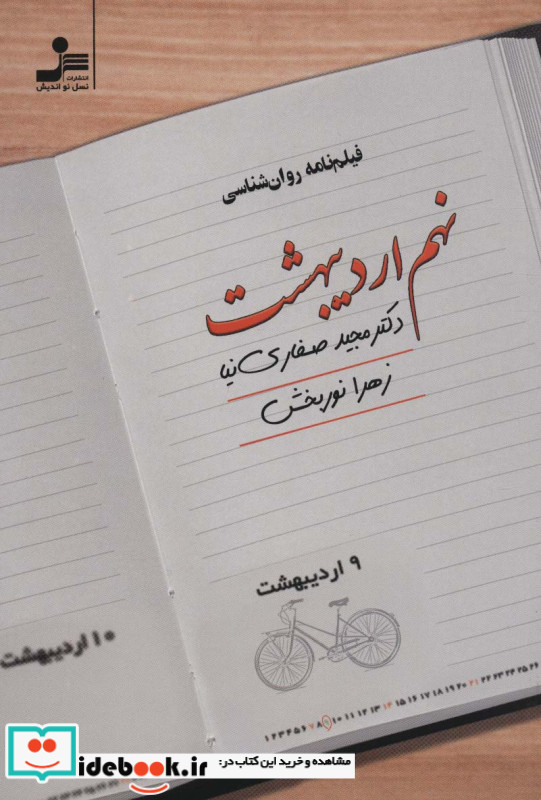 انتشارات
نسل نو اندیش
فیلم‌نامه روان‌شناسی
نهم اردیبهشت
دکتر مجید صفاری‌نیا
زهرا نوربخش
۹ اردیبهشت
۱۰ اردیبهشت
۱ ۲ ۳ ۴ ۵ ۶ ۷ ۸ ۹ ۱۰ ۱۱ ۱۲ ۱۳ ۱۴ ۱۵ ۱۶ ۱۷ ۱۸ ۱۹ ۲۰ ۲۱ ۲۲ ۲۳ ۲۴ ۲۵ ۲۶
مشاهده و خرید این کتاب در:
idebook.ir